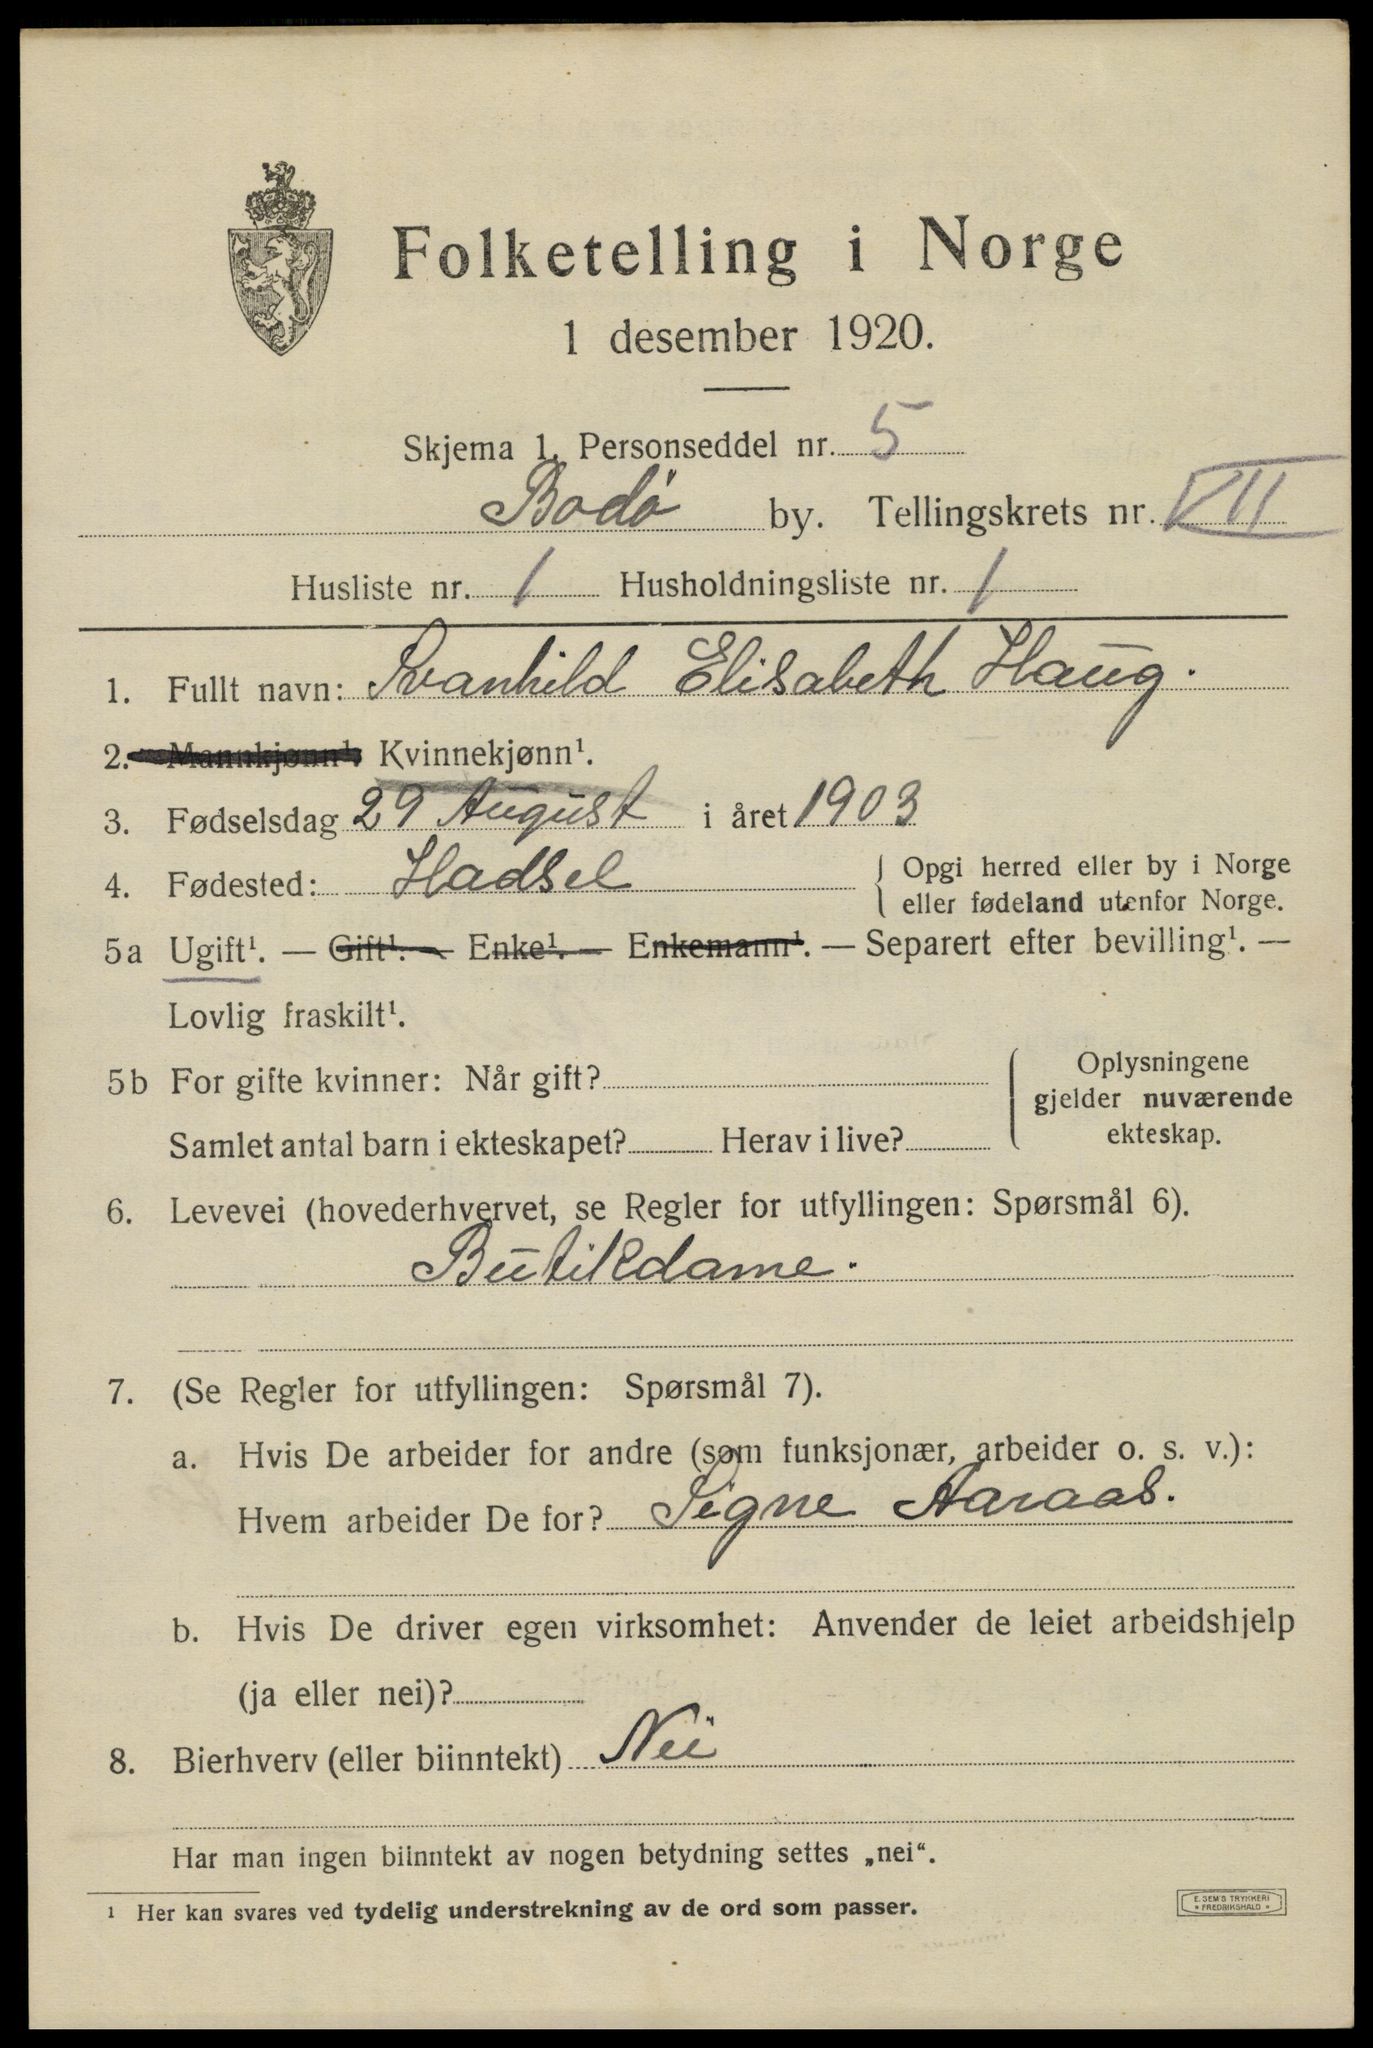 Folketelling i Norge
1 desember 1920.
Skjema 1. Personseddel nr. 5
Bodø by. Tellingskrets nr. VII
Husliste nr. 1 Husholdningsliste nr. 1
1. Fullt navn: Svanhild Elisabeth Haug.
2. Mannkjønn¹. Kvinnekjønn¹.
3. Fødselsdag 29 August i året 1903
4. Fødested: Hadsel
Opgi herred eller by i Norge
eller fødeland utenfor Norge.
5a Ugift¹. — Gift¹. — Enke¹. — Enkemann¹. — Separert efter bevilling¹. —
Lovlig fraskilt¹.
5b For gifte kvinner: Når gift?
Samlet antal barn i ekteskapet? Herav i live?
Oplysningene
gjelder nuværende
ekteskap.
6. Levevei (hovederhvervet, se Regler for utfyllingen: Spørsmål 6).
Butikdame.
7. (Se Regler for utfyllingen: Spørsmål 7).
a. Hvis De arbeider for andre (som funksjonær, arbeider o. s. v.):
Hvem arbeider De for? Signe Aaraas.
b. Hvis De driver egen virksomhet: Anvender de leiet arbeidshjelp
(ja eller nei)?
8. Bierhverv (eller biinntekt) Nei
Har man ingen biinntekt av nogen betydning settes „nei“.
¹ Her kan svares ved tydelig understrekning av de ord som passer.
E. SEM'S TRYKKERI
* FREDRIKSHALD *